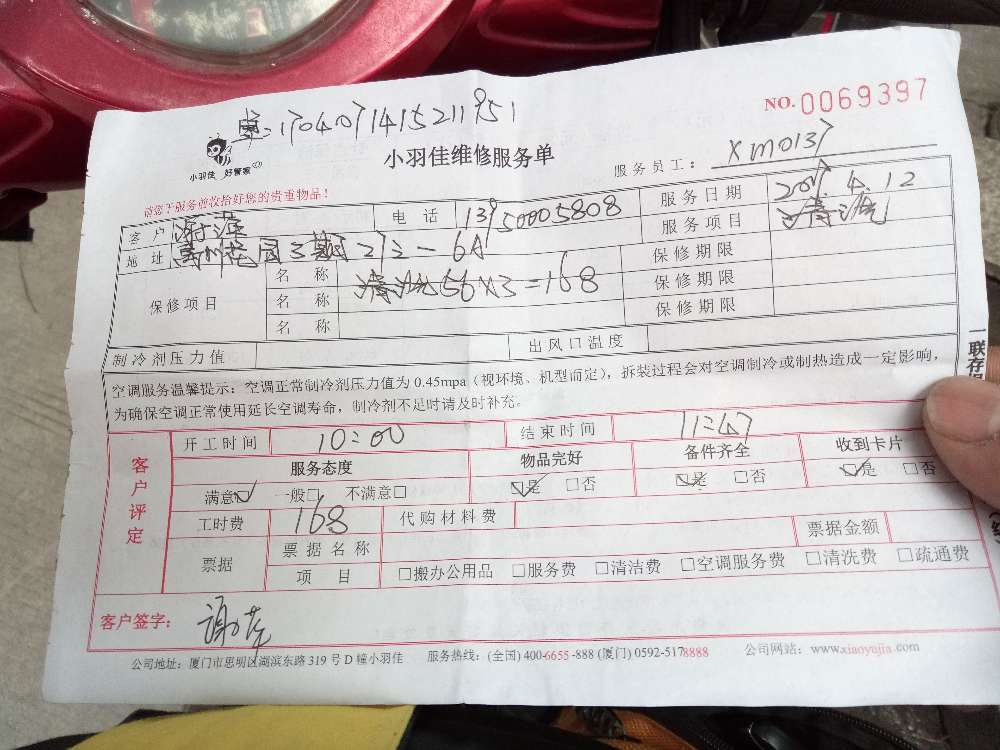 单:1704071415211951
NO.0069397
小羽佳 好管家
小羽佳维修服务单
服务员工: XM0137
请您于服务前收拾好您的贵重物品!
客户 电话 13950005808 服务日期 2017.4.12
地址 花园三期21三一6A 服务项目 清洗
保修项目 名称 清洗56X3=168 保修期限
名称 保修期限
名称 保修期限
制冷剂压力值 出风口温度
空调服务温馨提示:空调正常制冷剂压力值为 0.45mpa(视环境、机型而定),拆装过程会对空调制冷或制热造成一定影响,
为确保空调正常使用延长空调寿命,制冷剂不足时请及时补充。
一联存根
客户评定 开工时间 10:00 结束时间 11:47
服务态度 物品完好 备件齐全 收到卡片
满意☑ 一般□ 不满意□ ☑是 □否 ☑是 □否 ☑是 □否
工时费 168 代购材料费
票据 票据名称 票据金额
项目 □搬办公用品 □服务费 □清洁费 □空调服务费 □清洗费 □疏通费
客户签字:
公司地址:厦门市思明区湖滨东路 319 号 D 幢小羽佳 服务热线:(全国) 400-6655-888 (厦门) 0592-5178888 公司网站:www.xiaoyujia.com